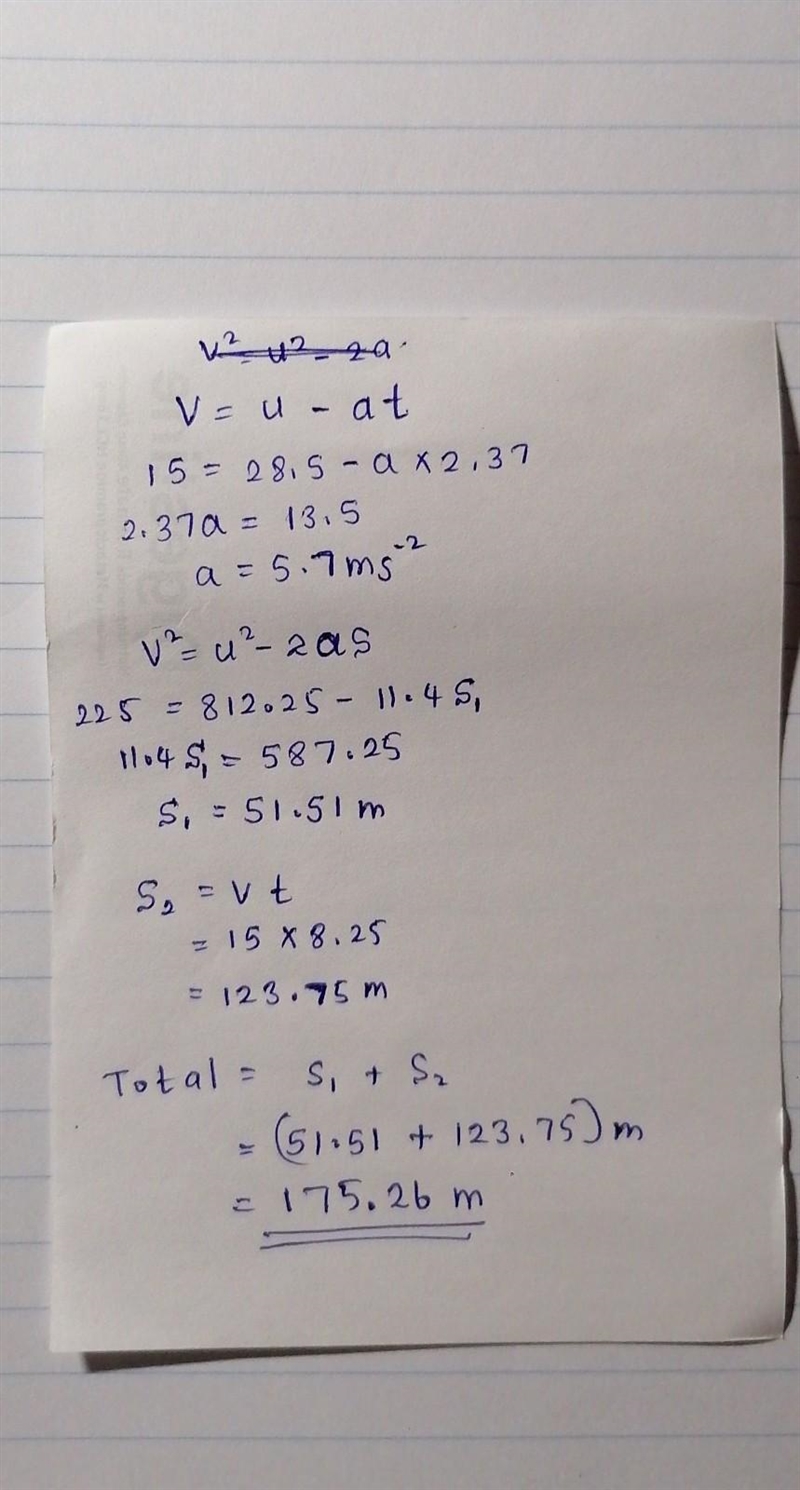 v² = u² - 2a.
V = u - at
15 = 28.5 - a × 2.37
2.37a = 13.5
a = 5.7ms⁻²
V² = u² - 2as
225 = 812.25 - 11.4 S₁
11.4 S₁ = 587.25
S₁ = 51.51 m
S₂ = v t
= 15 × 8.25
= 123.75 m
Total = S₁ + S₂
= (51.51 + 123.75) m
= 175.26 m